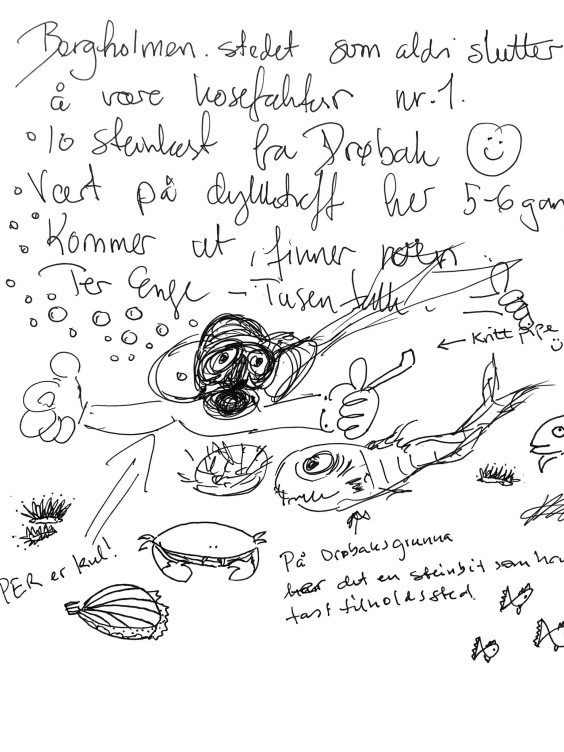 Bergholmen. stedet som aldri slutter
å være kosefaktor nr. 1.
10 steinkast fra Drøbak
Vært på dykketreff her 5-6 gan
Kommer at, finner noen
Ter Enge - Tusen takk.
← Krittpipe
PER er kul!
På Drøbaksgrunna
bær det en steinbit som har
fast tilholdssted.